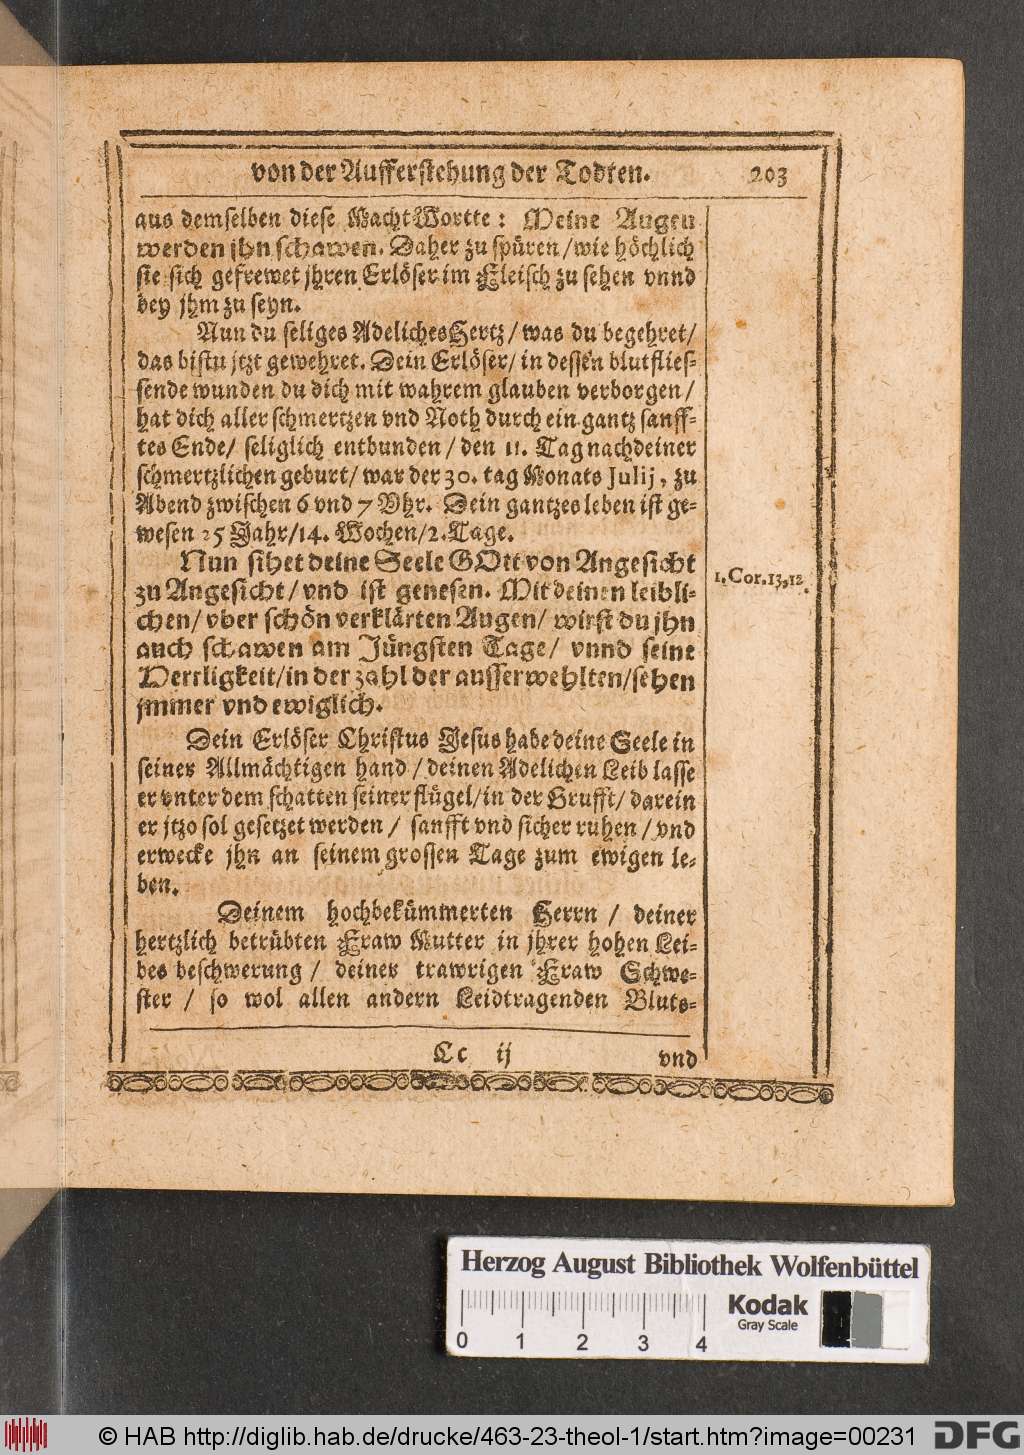 von der Aufferstehung der Todten. 203
aus demselben diese MachtWortte: Meine Augen
werden jhn schawen. Daher zu spüren/wie höchlich
sie sich gefrewet jhren Erlöser im Fleisch zu sehen vnnd
bey jhm zu seyn.
Nun du seliges AdelichesHertz/was du begehret/
das bistu jtzt gewehret. Dein Erlöser/in dessen blutflies-
sende wunden du dich mit wahrem glauben verborgen/
hat dich aller schmertzen vnd Noth durch ein gantz sanff-
tes Ende/ seliglich entbunden/den 11. Tag nachdeiner
schmertzlichen geburt/war der 30. tag Monats Julij, zu
Abend zwischen 6 vnd 7 Vhr. Dein gantzes leben ist ge-
wesen 25 Jahr/14. Wochen/2.Tage.
Nun sihet deine Seele GOtt von Angesicht
zu Angesicht/vnd ist genesen. Mit deinen leibli-
chen/vber schön verklärten Augen/wirst du jhn
auch schawen am Jüngsten Tage/ vnnd seine
Herrligkeit/in der zahl der ausserwehlten/sehen
jmmer vnd ewiglich.
1. Cor. 13,12.
Dein Erlöser Christus Jesus habe deine Seele in
seiner Allmächtigen hand/deinen Adelichen Leib lasse
er vnter dem schatten seiner flügel/in der Grufft/darein
er jtzo sol gesetzet werden/ sanfft vnd sicher ruhen/vnd
erwecke jhn an seinem grossen Tage zum ewigen le-
ben.
Deinem hochbekümmerten Herrn/ deiner
hertzlich betrübten Fraw Mutter in jhrer hohen Lei-
bes beschwerung/ deiner trawrigen Fraw Schwe-
ster/ so wol allen andern Leidtragenden Bluts-
Cc ij vnd
Herzog August Bibliothek Wolfenbüttel
0 1 2 3 4
Kodak
Gray Scale
© HAB http://diglib.hab.de/drucke/463-23-theol-1/start.htm?image=00231
DFG